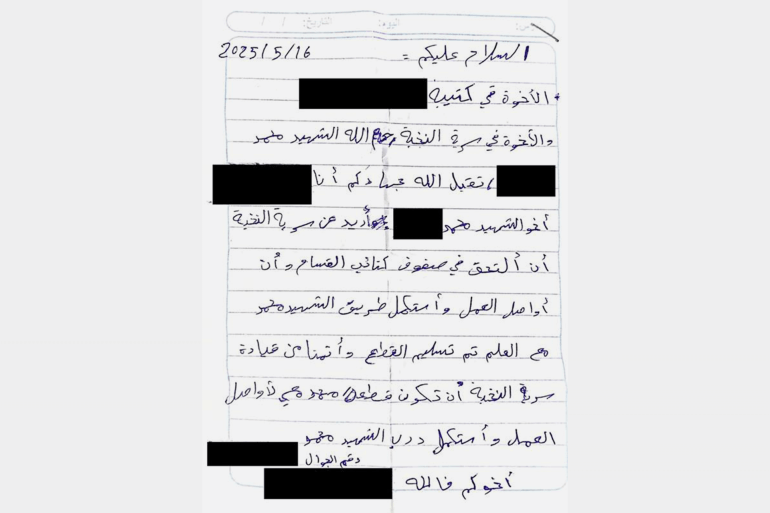 التاريخ: / / اليوم:
السلام عليكم = 2025/5/16
الأخوة في كتيبة
والأخوة في سرية النخبة رحم الله الشهيد محمد
تقبل الله جهادكم أنا
أخو الشهيد محمد أريد عن سرية النخبة
أن ألتحق في صفوف كتائب القسام وأن
أواصل العمل وأستكمل طريق الشهيد محمد
مع العلم تم تسليم القطع وأتمنا من قيادة
سرية النخبة أن تكون قطعة محمد معي لأواصل
العمل وأستكمل درب الشهيد محمد
رقم الجوال
أخوكم فالله